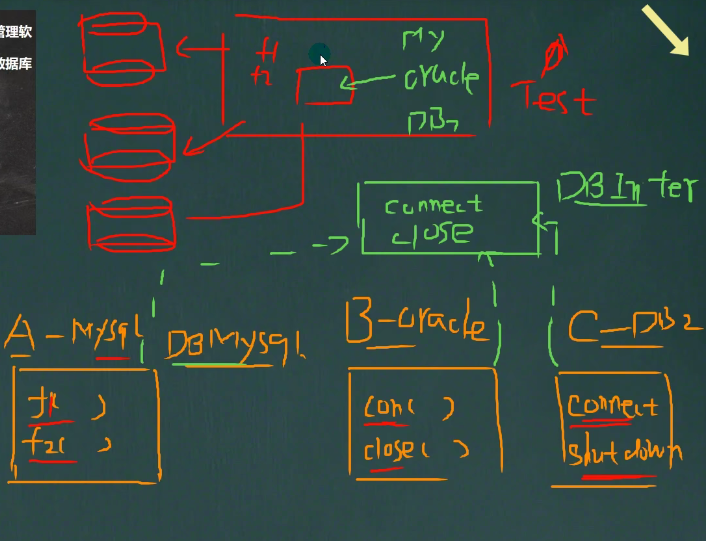 管理软
数据库
f1
f2
My
oracle
DB2
Test
DBInter
connect
close
A-Mysql
DBMysql
B-oracle
C-DB2
f1( )
f2( )
con( )
close( )
connect
shutdown